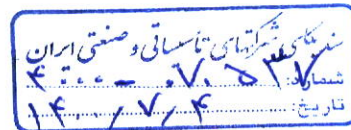 سندیکای شرکتهای تاسیساتی و صنعتی ایران
شماره:
تاریخ: ۱۴۰۰/۷/۴